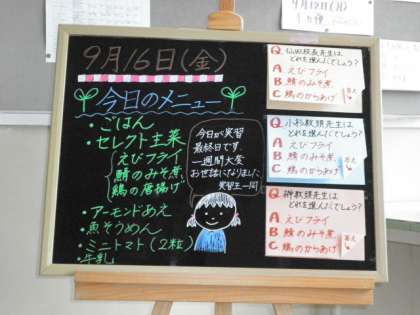 9月16日(金)
今日のメニュー
・ごはん
・セレクト主菜
えびフライ
鯖のみそ煮
鶏の唐揚げ
・アーモンドあえ
・魚そうめん
・ミニトマト(2粒)
・牛乳
今日が実習
最終日です。
一週間大変
お世話になりました
実習生一同
Q 仙田校長先生は
どれを選んだでしょう?
A えびフライ
B 鯖のみそ煮
C 鶏のからあげ
答え
Q 小杉教頭先生は
どれを選んだでしょう?
A えびフライ
B 鯖のみそ煮
C 鶏のからあげ
答え
Q 榊教頭先生は
どれを選んだでしょう?
A えびフライ
B 鯖のみそ煮
C 鶏のからあげ
答え
9月12日(月)